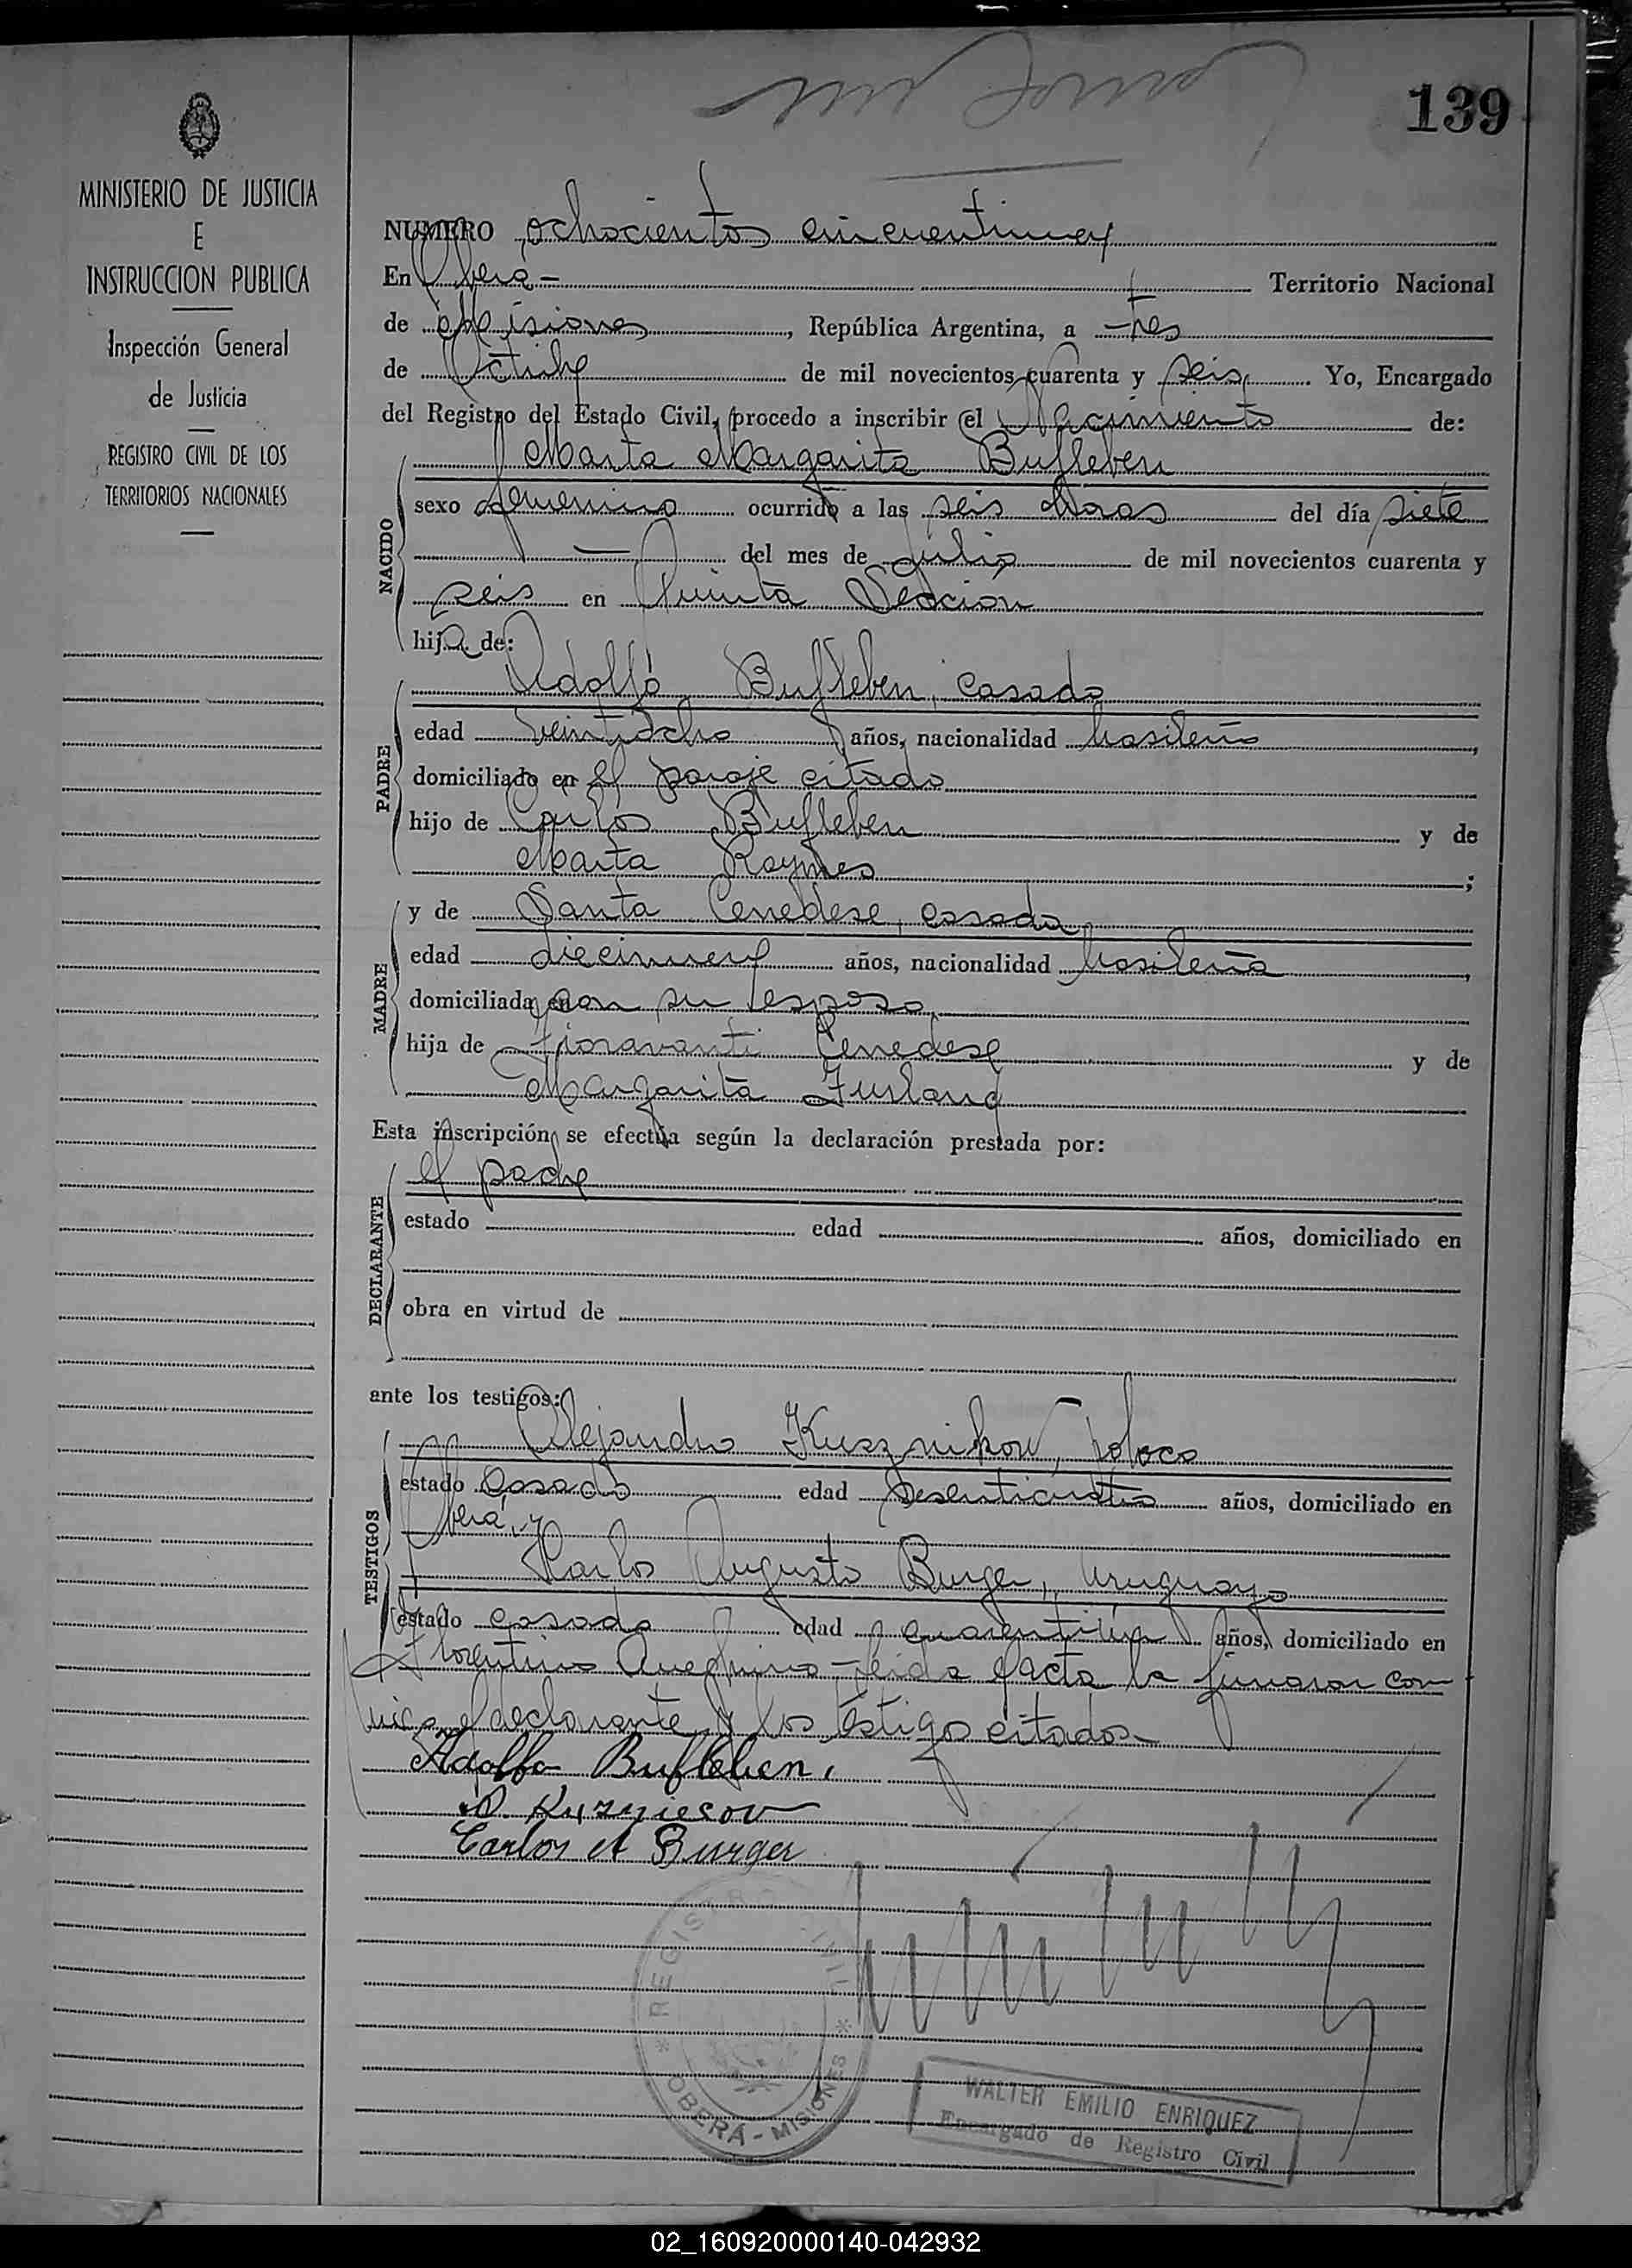 139
MINISTERIO DE JUSTICIA
E
INSTRUCCION PUBLICA
Inspección General
de Justicia
REGISTRO CIVIL DE LOS
TERRITORIOS NACIONALES
NUMERO ochocientos cincuentinueve
En Oberá - Territorio Nacional
de Misiones, República Argentina, a - tres
de Octubre de mil novecientos cuarenta y seis. Yo, Encargado
del Registro del Estado Civil, procedo a inscribir el Nacimiento de:
NACIDO
Marta Margarita Bufleben
sexo femenino ocurrido a las seis horas del día siete
— del mes de julio de mil novecientos cuarenta y
seis en Quinta Sección
hija de:
PADRE
Adolfo Bufleben, casado
edad veintiocho años, nacionalidad brasileño,
domiciliado en el paraje citado
hijo de Carlos Bufleben y de
Marta Raymes;
MADRE
y de Santa Cenedese, casada
edad diecinueve años, nacionalidad brasileña,
domiciliada en con su esposo,
hija de Fioravanti Cenedese y de
Margarita Furland
Esta inscripción se efectúa según la declaración prestada por:
DECLARANTE
el padre
estado edad años, domiciliado en
obra en virtud de
ante los testigos:
TESTIGOS
Alejandro Kusznikow, polaco
estado casado edad sesenticuatro años, domiciliado en
Oberá, y
Carlos Augusto Burger, Uruguayo
estado casado edad años, domiciliado en
Florentino Ameghino - leida el acta la firmaron con
migo el declarante y los testigos citados -
Adolfo Bufleben.
A. Kuzniecov
Carlos A Burger
REGISTRO CIVIL
* OBERÁ - MISIONES *
WALTER EMILIO ENRIQUEZ
Encargado de Registro Civil
02_160920000140-042932